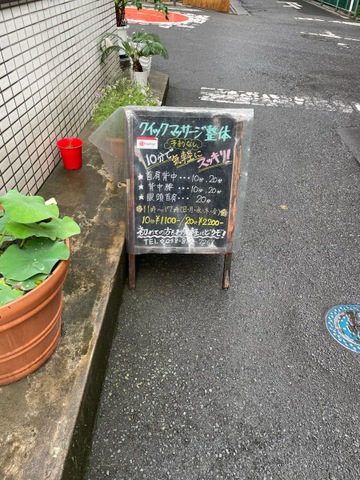 クイックマッサージ整体
(予約なし)
10分で気軽にスッキリ!!
★首肩背中・・・10分、20分
★背中腰・・・10分、20分
★眼頭首肩・・・20分
10分¥1100-/20分¥2200-
初めての方も
TEL